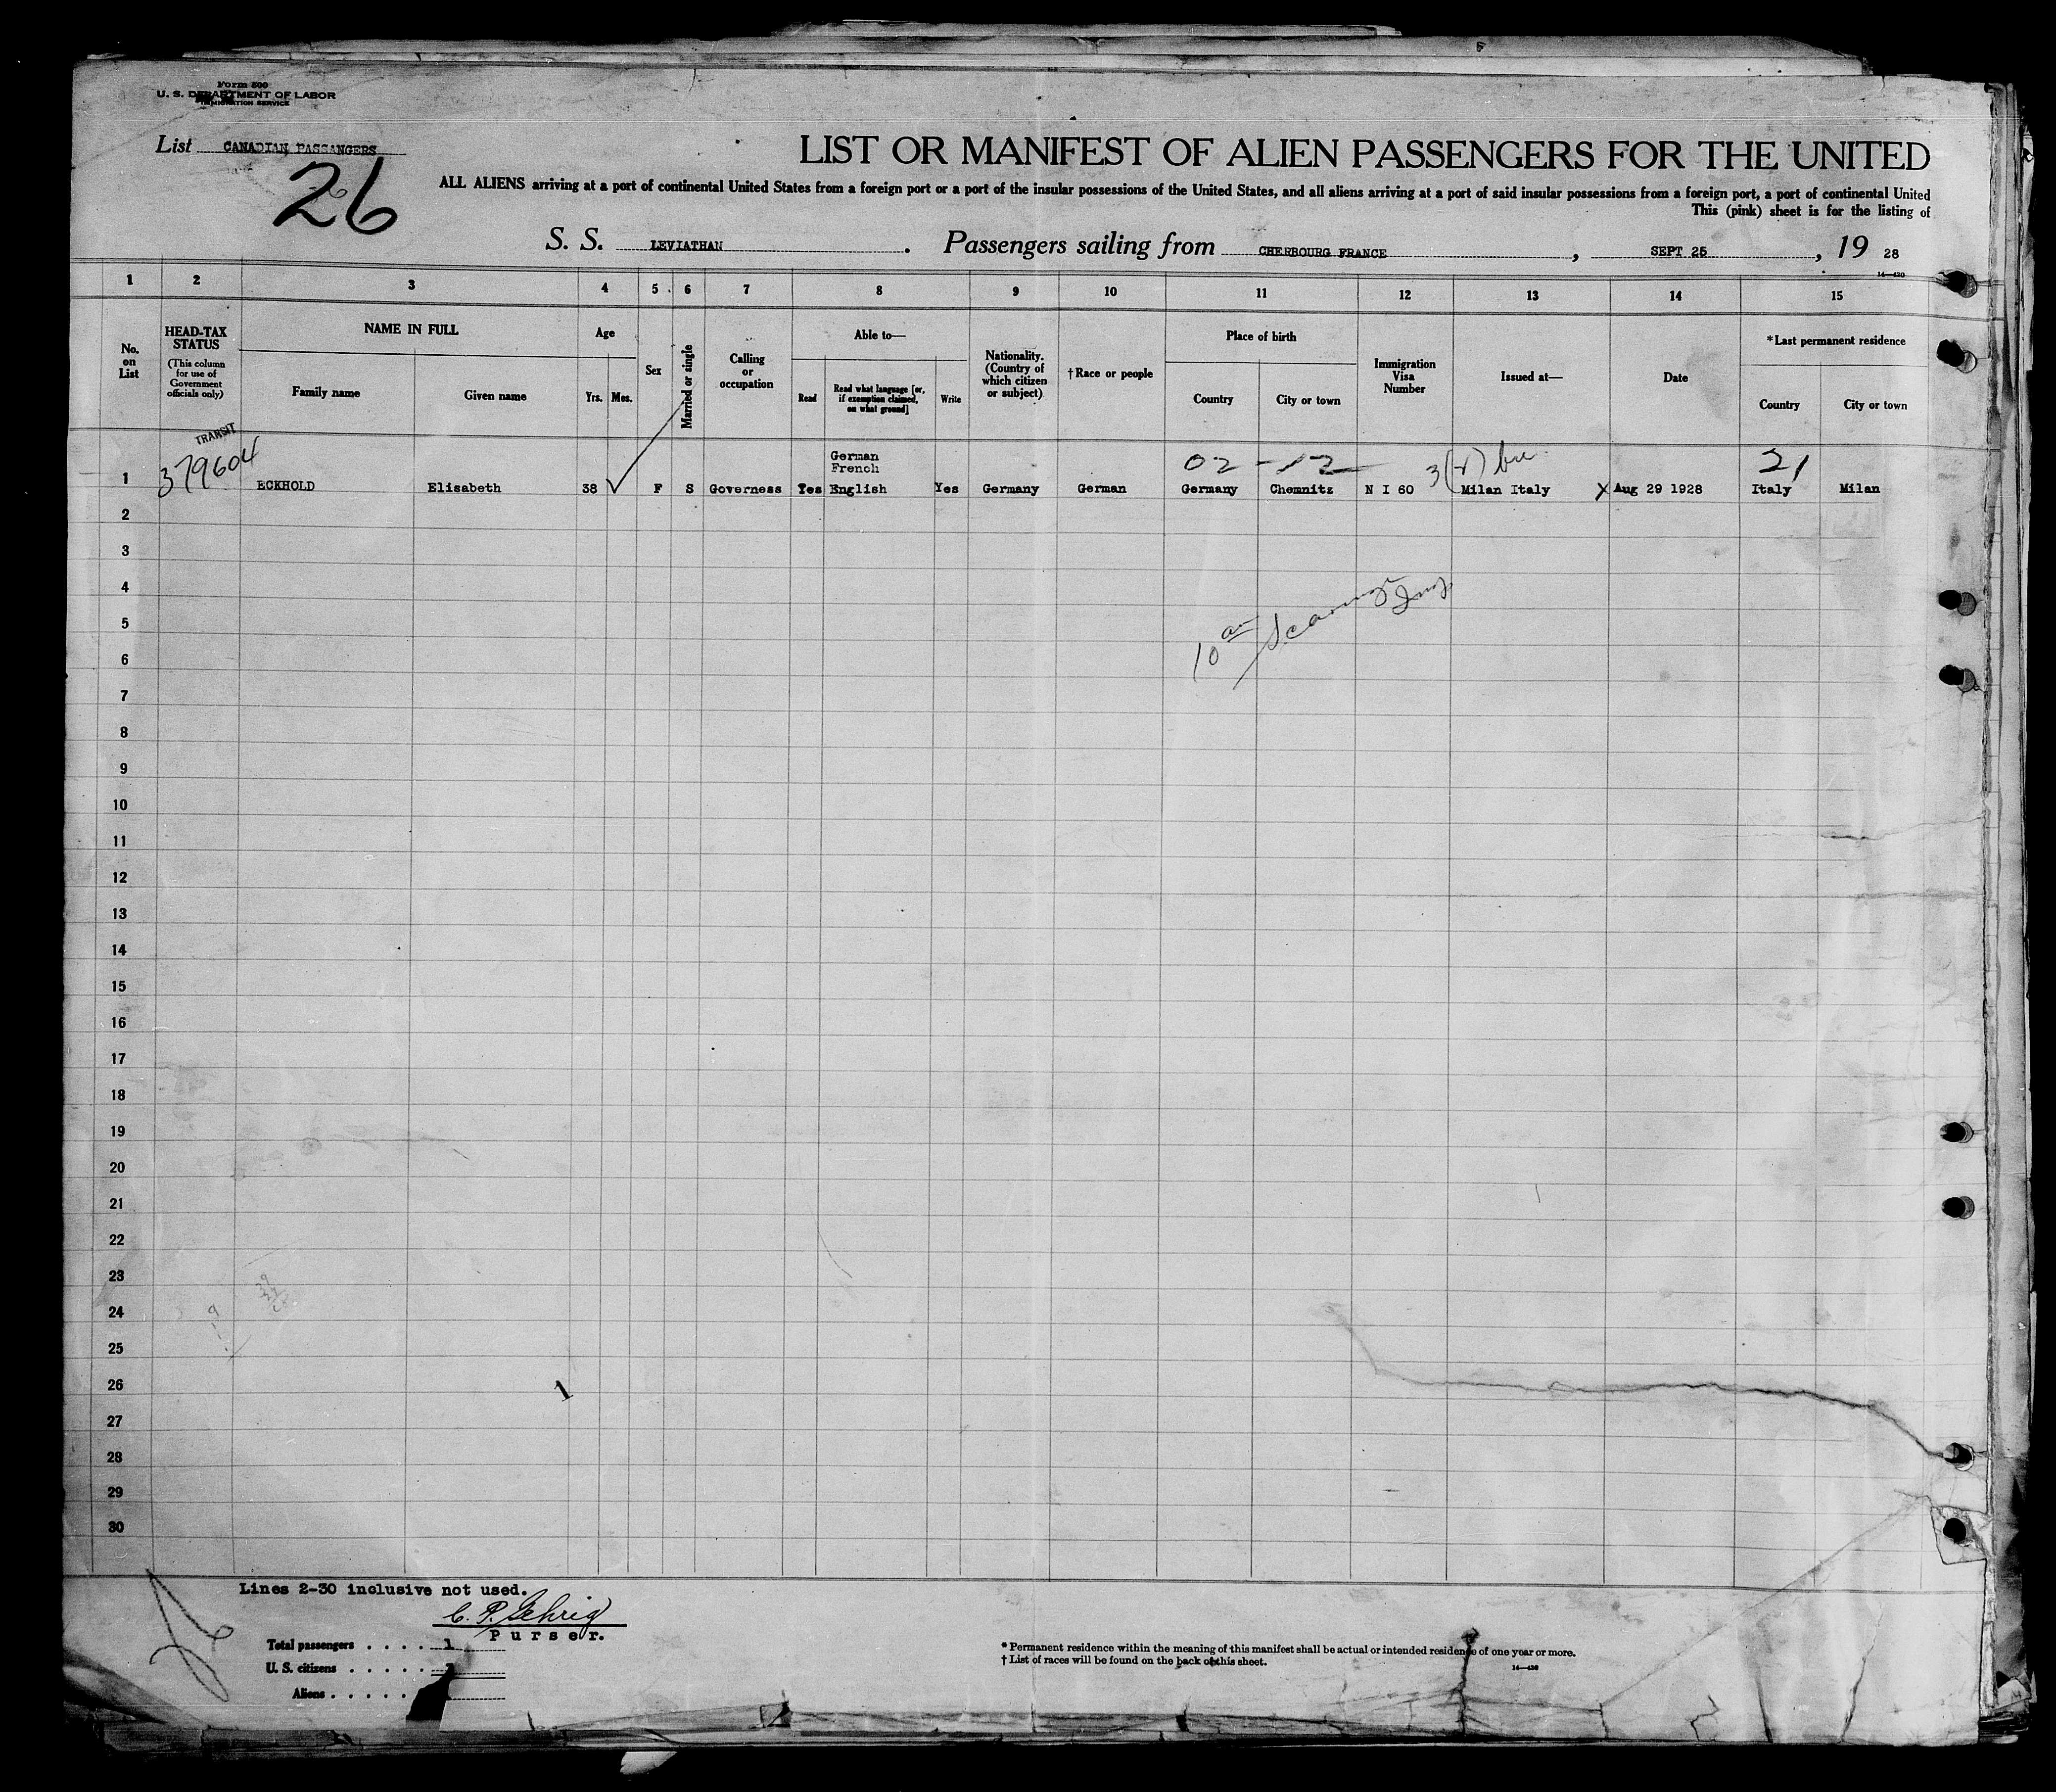 Form 500
U. S. DEPARTMENT OF LABOR
IMMIGRATION SERVICE
List CANADIAN PASSANGERS
26
LIST OR MANIFEST OF ALIEN PASSENGERS FOR THE UNITED
ALL ALIENS arriving at a port of continental United States from a foreign port or a port of the insular possessions of the United States, and all aliens arriving at a port of said insular possessions from a foreign port, a port of continental United
This (pink) sheet is for the listing of
S. S. LEVIATHAN . Passengers sailing from CHERBOURG FRANCE , SEPT 25 , 19 28
1 2 3 4 5 6 7 8 9 10 11 12 13 14 15
No. on List
HEAD-TAX STATUS
(This column for use of Government officials only)
NAME IN FULL
Family name
Given name
Age
Yrs. Mos.
Sex
Married or single
Calling or occupation
Able to—
Read
Read what language [or, if exemption claimed, on what ground]
Write
Nationality. (Country of which citizen or subject)
†Race or people
Place of birth
Country
City or town
Immigration Visa Number
Issued at—
Date
*Last permanent residence
Country
City or town
TRANSIT
379604
German
French
02 - 12
21
1 ECKHOLD Elisabeth 38 F S Governess Yes English Yes Germany German Germany Chemnitz N I 60 Milan Italy X Aug 29 1928 Italy Milan
2
3
4
5
10 am
6
7
8
9
10
11
12
13
14
15
16
17
18
19
20
21
22
23
24
25
26
1
27
28
29
30
Lines 2-30 inclusive not used.
C. P. Gehrig
Purser.
26
Total passengers . . . . 1
U. S. citizens . . . . .
Aliens . . . . .
* Permanent residence within the meaning of this manifest shall be actual or intended residence of one year or more.
† List of races will be found on the back of this sheet.